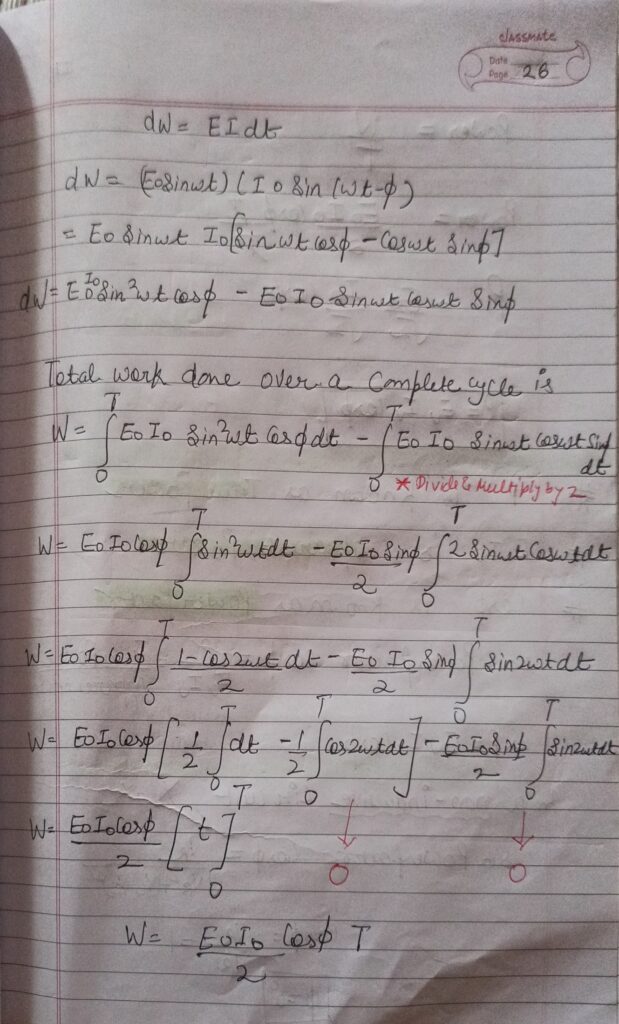 classmate
Date
Page 26
dW = EIdt
dW = (E₀sinωt) (I₀ sin (ωt-ϕ)
= E₀ sinωt I₀[sinωt cosϕ - cosωt sinϕ]
dW = E₀I₀ sin²ωt cosϕ - E₀ I₀ sinωt cosωt sinϕ
Total work done over a complete cycle is
W = ∫₀ᵀ E₀ I₀ sin²ωt cosϕ dt - ∫₀ᵀ E₀ I₀ sinωt cosωt sinϕ dt
* Divide & Multiply by 2
W = E₀I₀cosϕ ∫₀ᵀ sin²ωtdt - E₀I₀sinϕ/2 ∫₀ᵀ 2 sinωt cosωtdt
W = E₀ I₀ cosϕ ∫₀ᵀ 1-cos2ωt/2 dt - E₀ I₀ sinϕ/2 ∫₀ᵀ sin2ωtdt
W = E₀I₀cosϕ [1/2 ∫₀ᵀ dt - 1/2 ∫₀ᵀ cos2ωtdt] - E₀I₀sinϕ/2 ∫₀ᵀ sin2ωtdt
W = E₀I₀cosϕ/2 [t]₀ᵀ ↓ 0 ↓ 0
W = E₀I₀ cosϕ/2 T